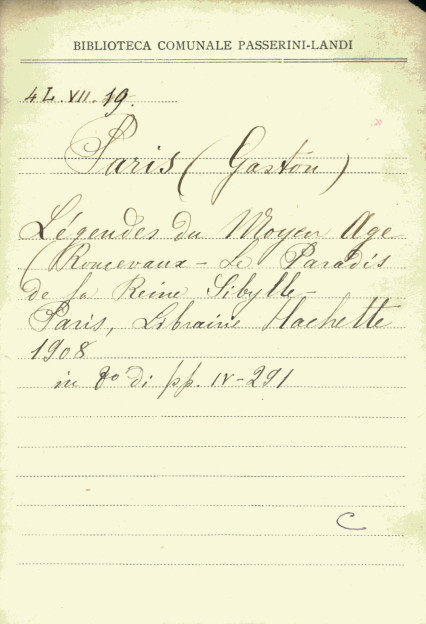 BIBLIOTECA COMUNALE PASSERINI-LANDI
4 L. VII. 19.
Paris (Gaston)
Légendes du Moyen Age
(Roncevaux - Le Paradis
de la Reine Sibylle -
Paris, Librairie Hachette
1908
in 8° di pp. IV-291
C